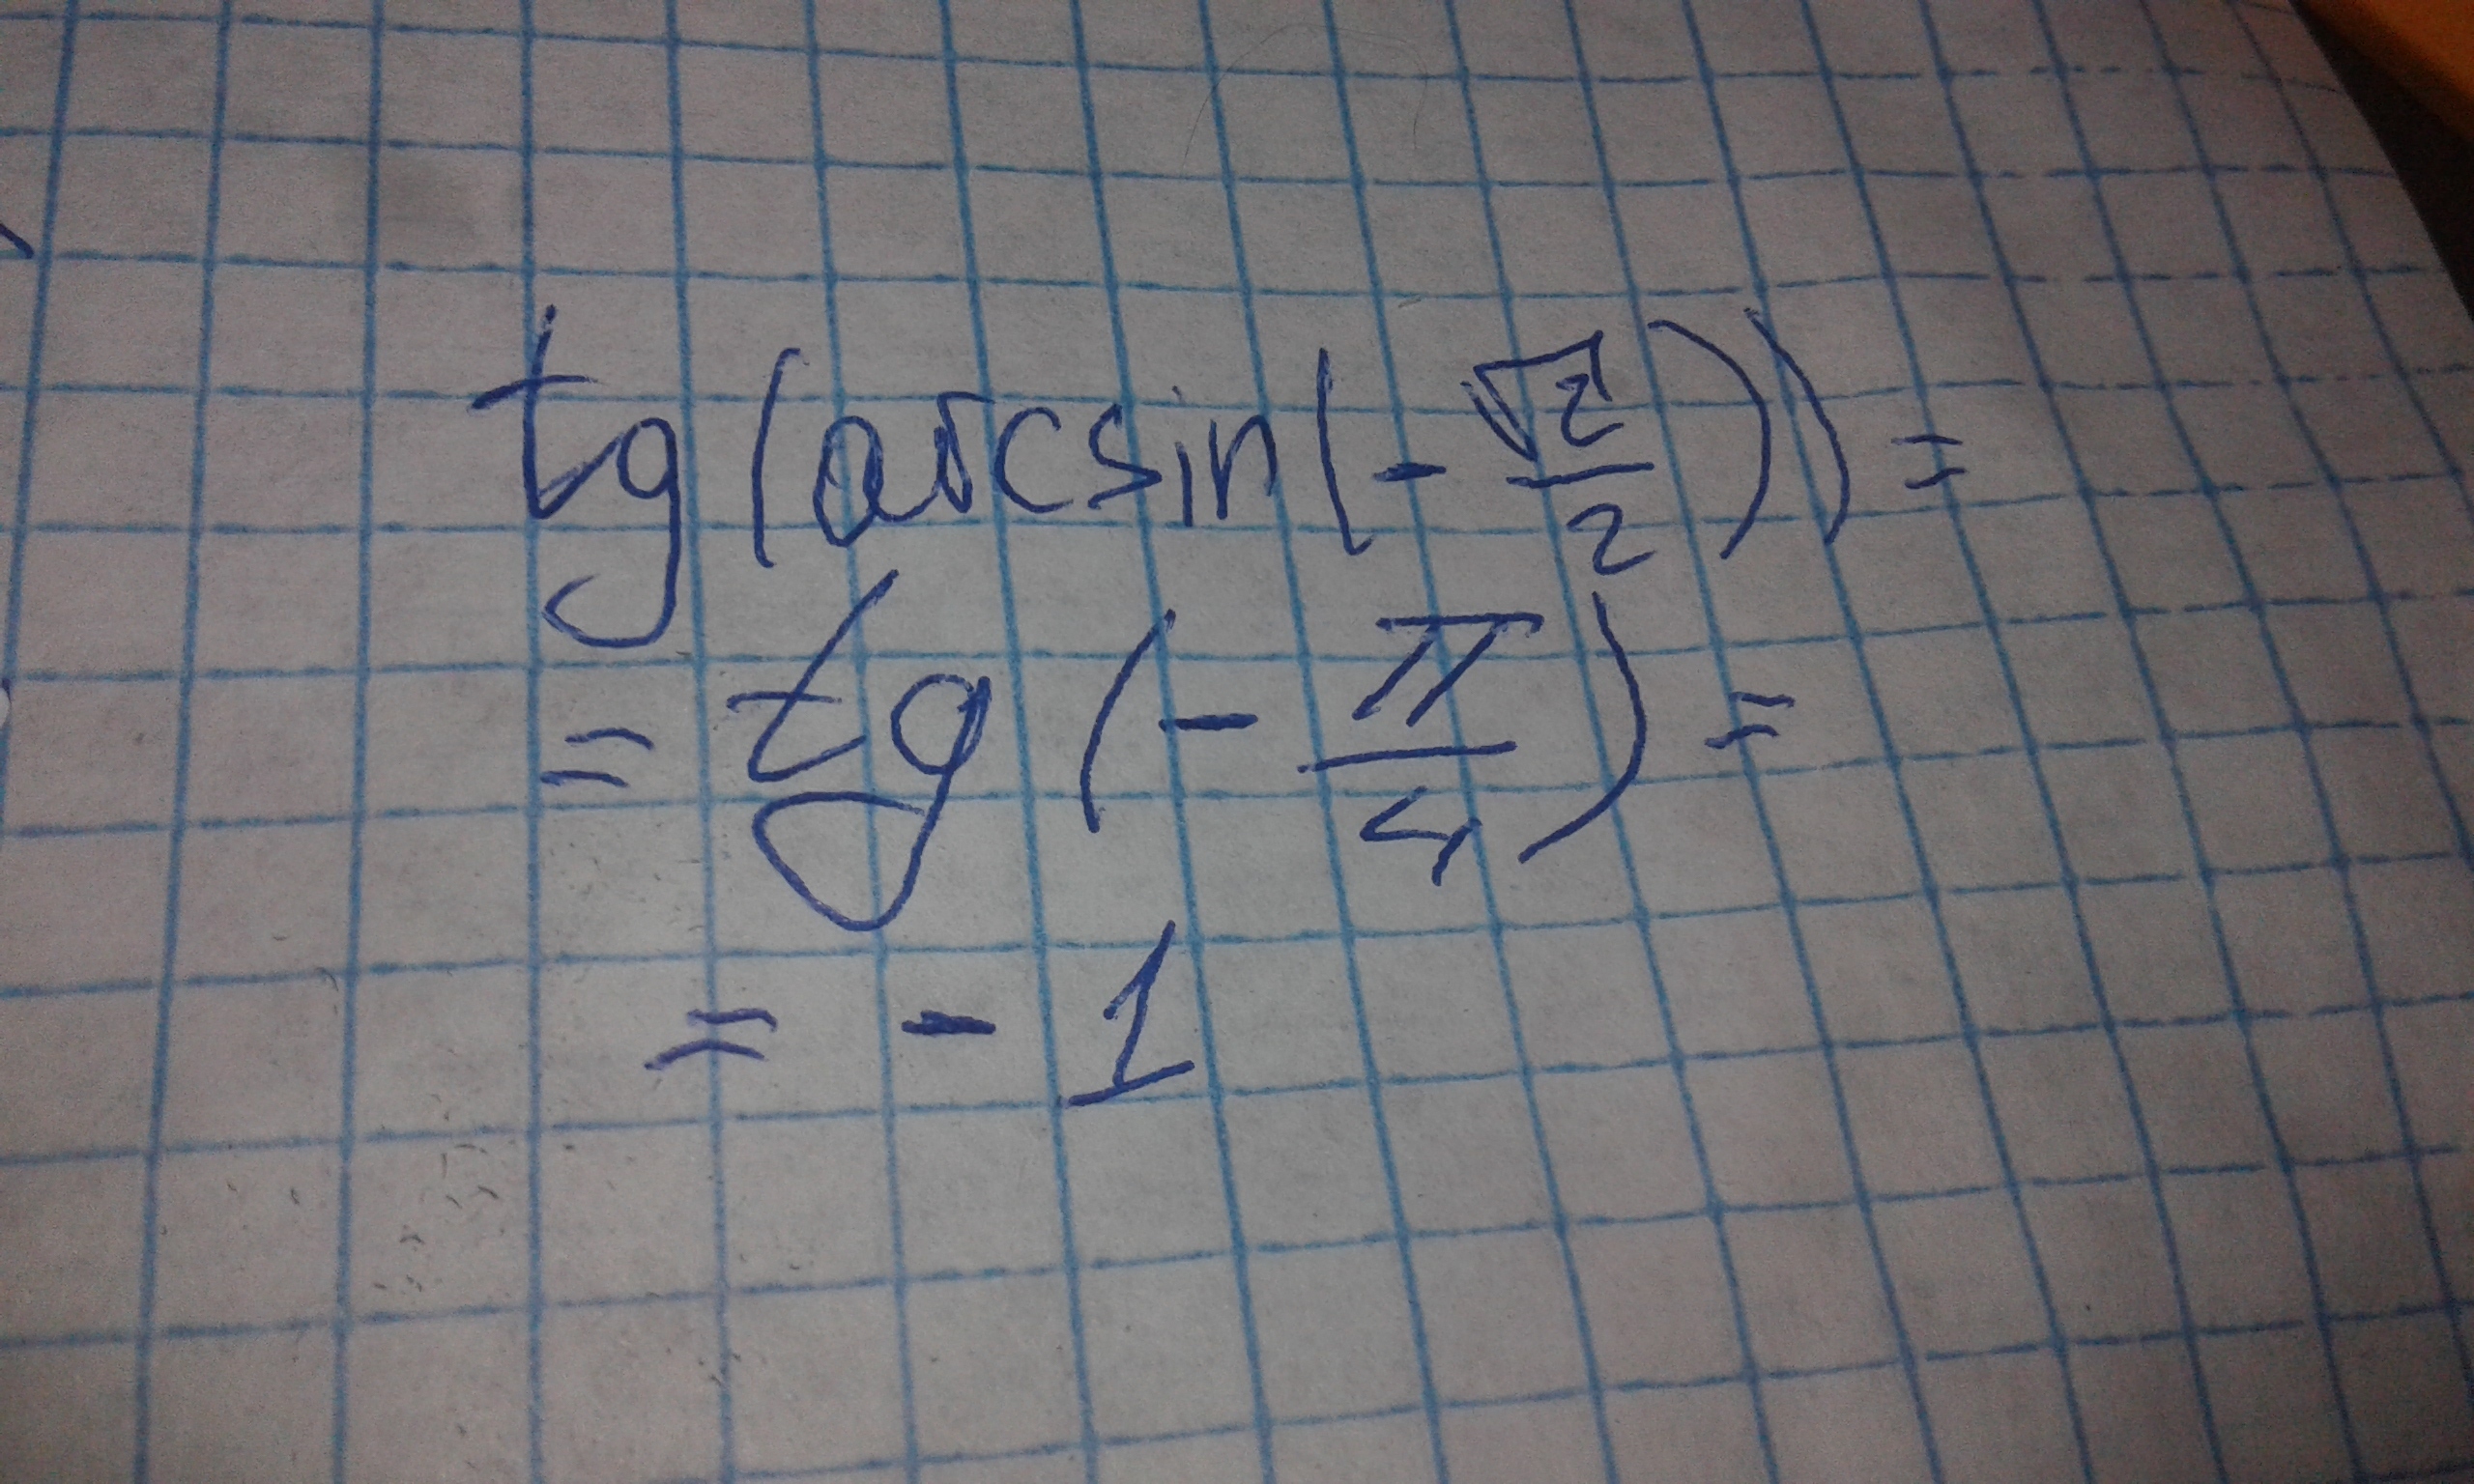 tg(arcsin(-√2/2))=
=tg(-π/4)=
=-1